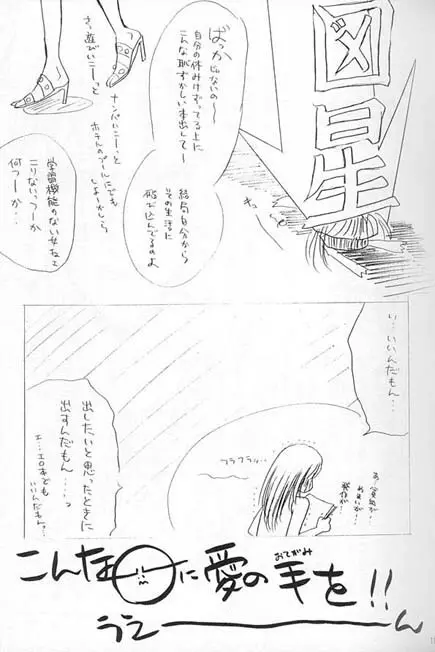 図星
ばっか
じゃないの〜
自分の体みけずってる上に
こんな恥ずかしい本出して〜
結局自分から
その生活に
飛び込んでるのよ
さっ遊びいこーっと
ナンパいこーっと
ホテルのプールにでも
しよーかしら
学習機能のない女ねェ
こりないっつーか
何つーか…
い…いいんだもん…
あ、貧血が
めまいが…
発作が…
フラフラッ…
出したいと思ったときに
出すんだもん……っ
エ…エロ本でも
いいんだもん…っ
こんな
に愛の手を!!
おてがみ
うえーーーん